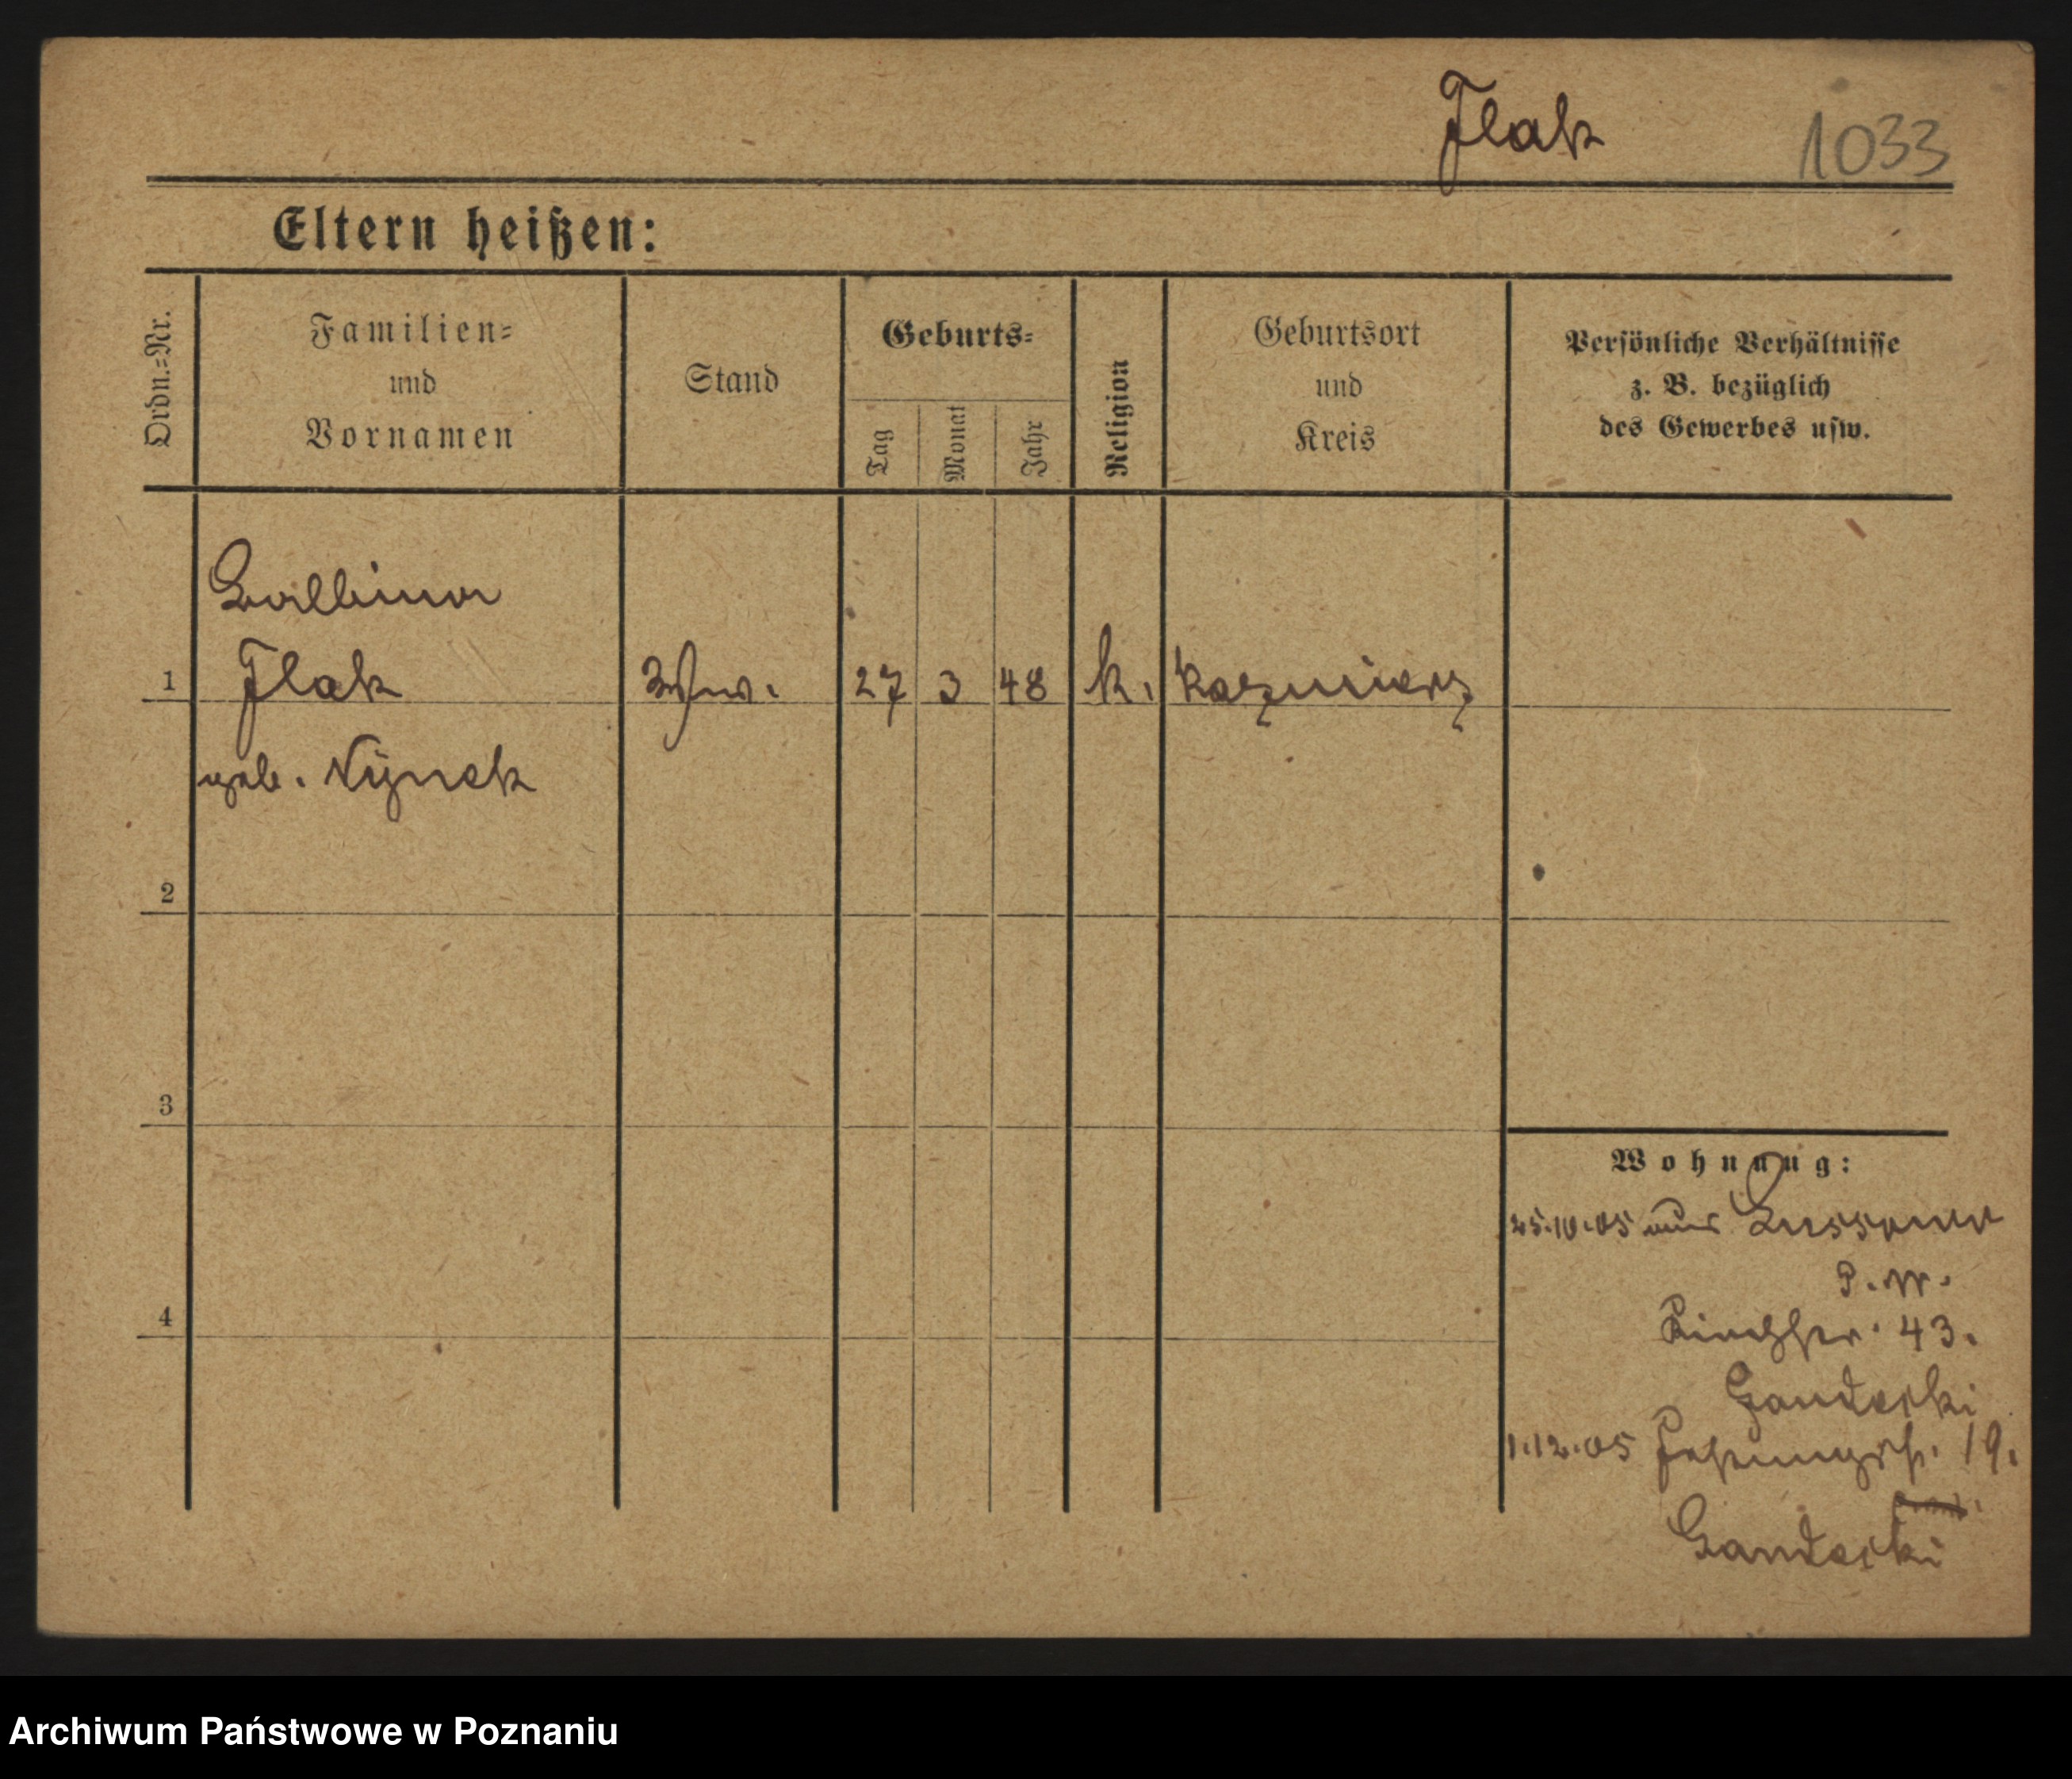 Flak 1033
Eltern heißen:
Ordn.=Nr.
Familien=
und
Vornamen
Stand
Geburts=
Tag
Monat
Jahr
Religion
Geburtsort
und
Kreis
Persönliche Verhältnisse
z. B. bezüglich
des Gewerbes usw.
Balbina
1 Flak Wwe. 27 3 48 k. Kazmierz
geb. Nijnek
2
3
4
Wohnung:
25.10.05 aus
P. W.
43.
Gandecki
1.12.05 19.
Gandecki
Archiwum Państwowe w Poznaniu